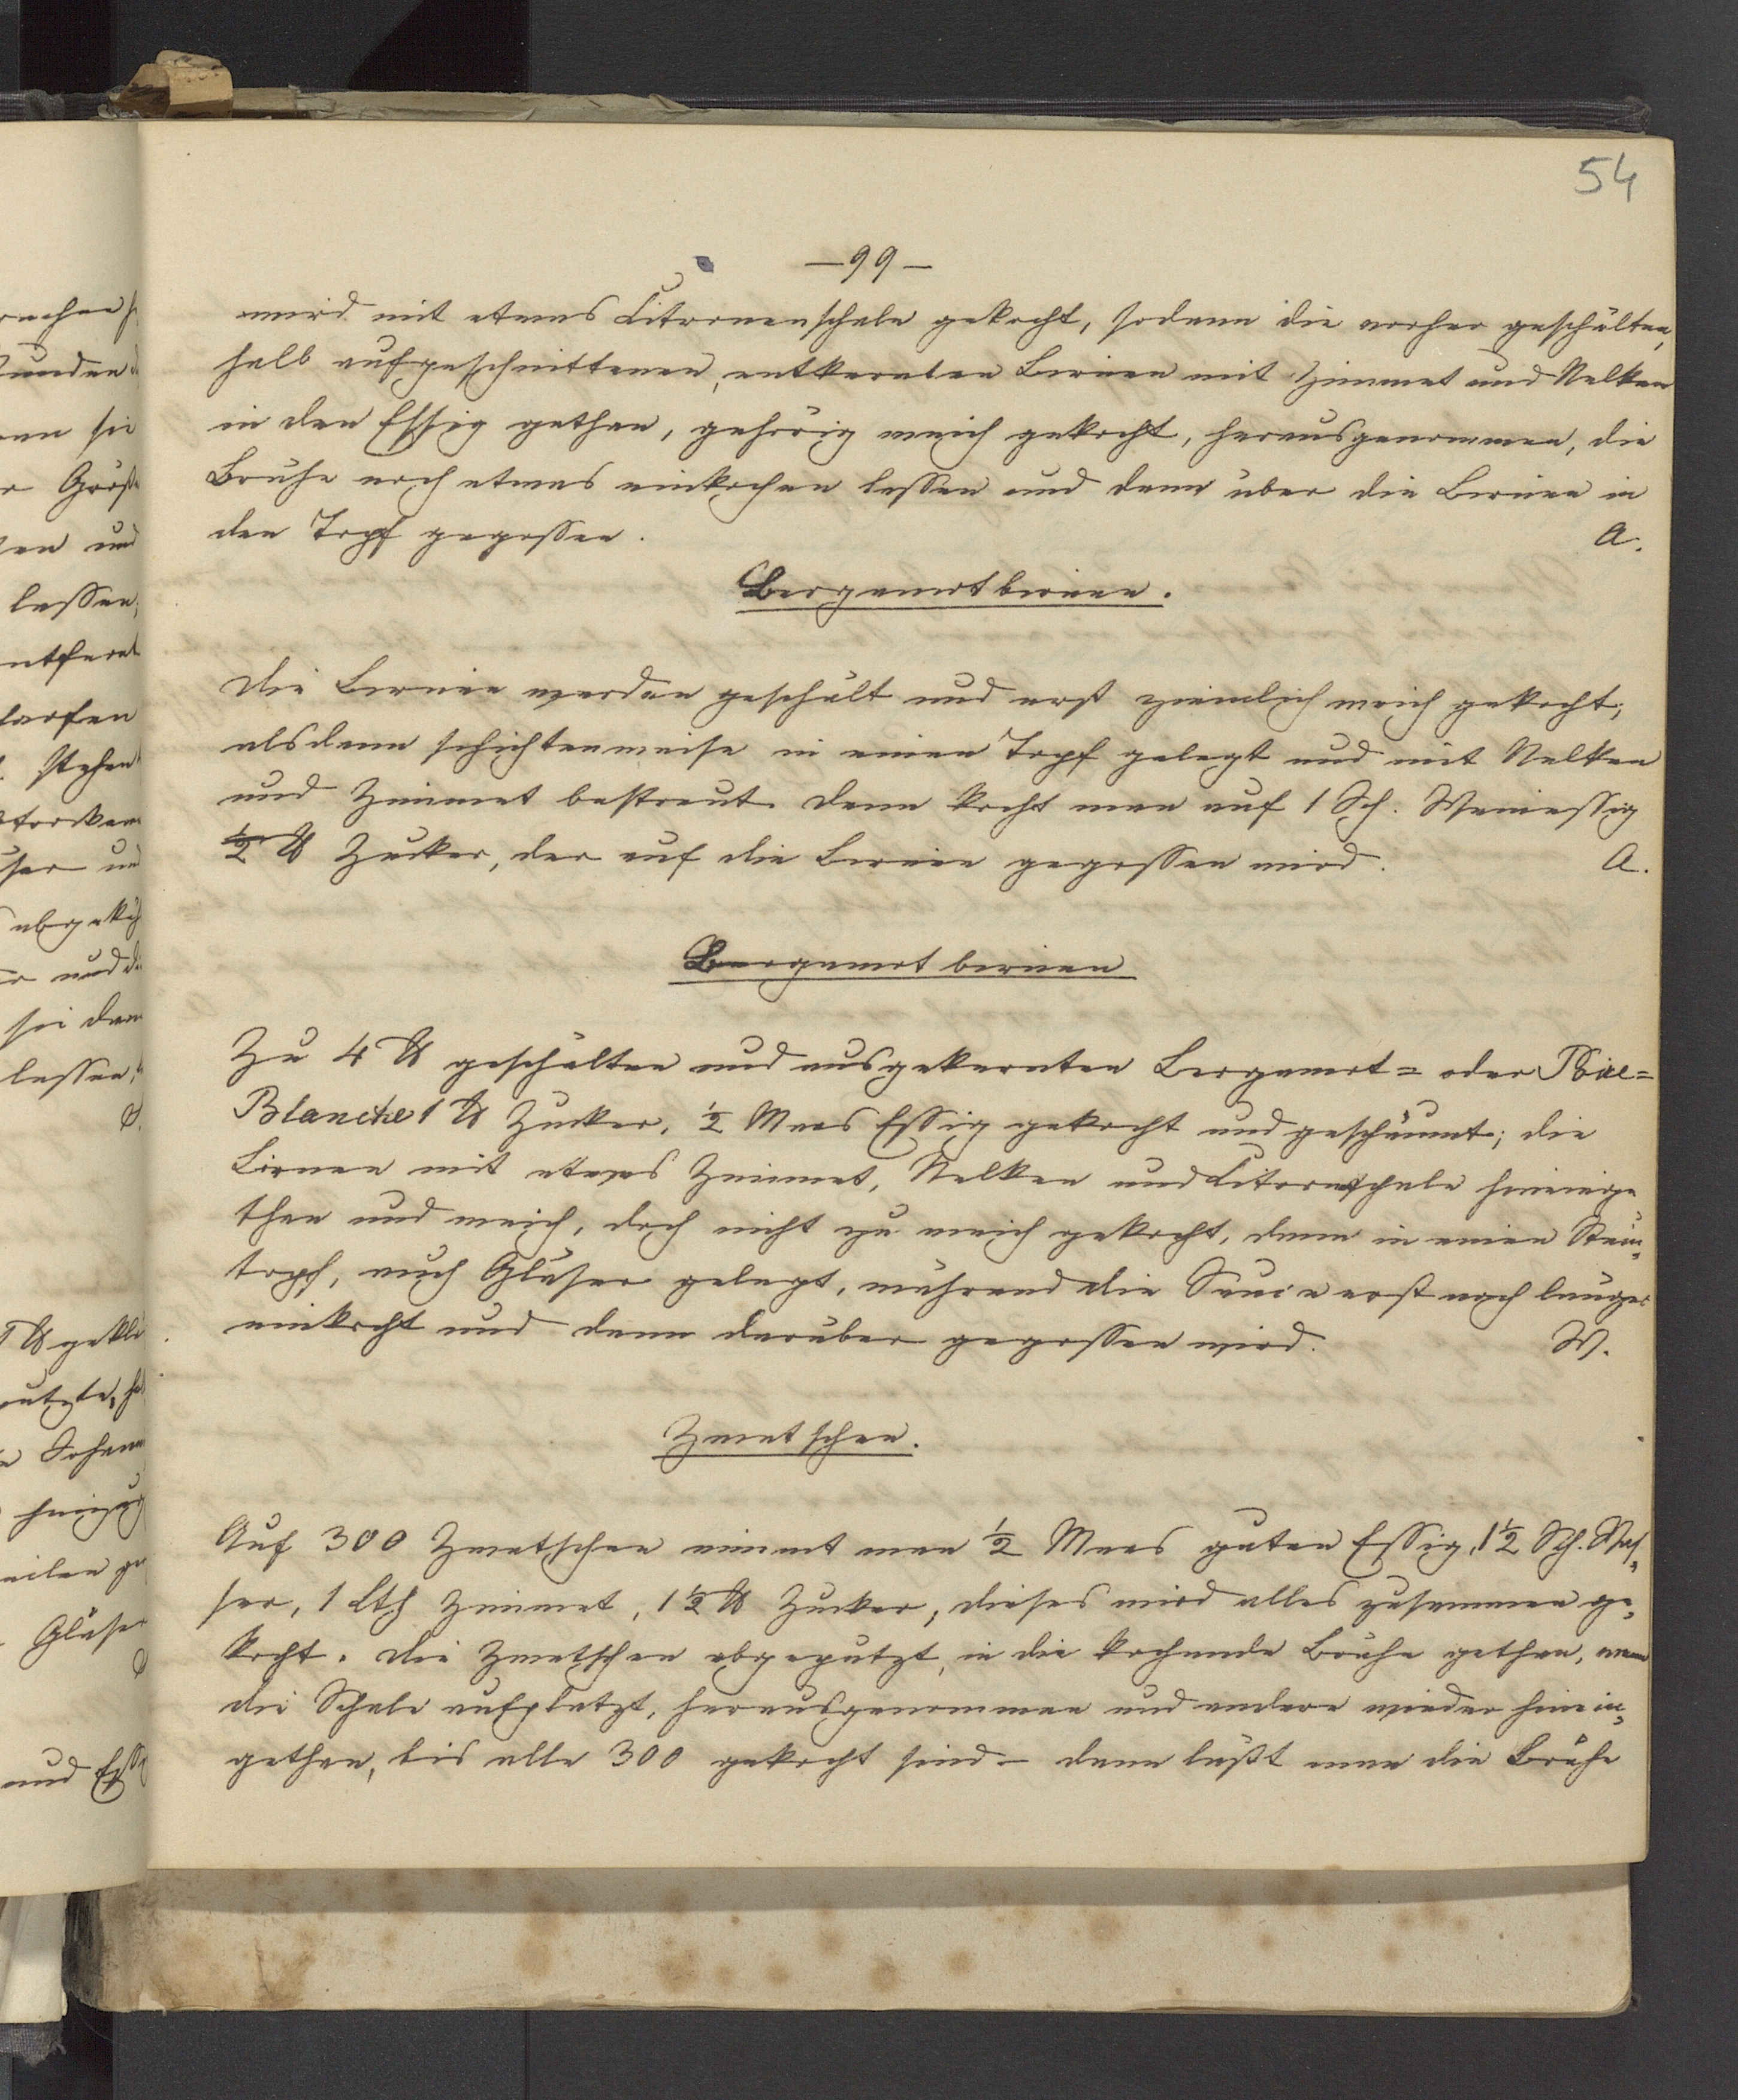 54
— 99 —
wird mit etwas Citronenschale gekocht, sodann die vorher geschälten,
halb aufgeschnittenen, entkernten Birnen mit Zimmet und Nelken
in den Essig gethan, gehörig weich gekocht, herausgenommen, die
Brühe noch etwas einkochen lassen und dann über die Birnen in
den Topf gegossen. A.
Bergamotbirnen.
Die Birnen werden geschält und erst ziemlich weich gekocht;
alsdann schichtenweise in einen Topf gelegt und mit Nelken
und Zimmet bestreut. Dann kocht man auf 1 Sch. Weinessig
½ ℔ Zucker, der auf die Birnen gegossen wird. A.
Bergamot birnen
Zu 4 ℔ geschälten und ausgekernten Bergamot= oder
Blanche 1 ℔ Zucker, ½ Maas Essig gekocht und geschäumt; die
Birnen mit etwas Zimmet, Nelken und Citronschale hineinge
than und weich, doch nicht zu weich gekocht, dann in einen Stein„
topf, auch Gläser gelegt, während die Sauce erst noch länger
einkocht und dann darüber gegossen wird. W.
Zwetschen.
Auf 300 Zwetschen nimmt man ½ Maas guten Essig, 1½ Sch. Was„
ser, 1 Lth Zimmet, 1½ ℔ Zucker, dieses wird alles zusammen ge„
kocht. Die Zwetschen abgeputzt, in die kochende Brühe gethan, wenn
die Schale aufplatzt, herausgenommen und andere wieder hinein„
gethan, bis alle 300 gekocht sind – dann läßt man die Brühe